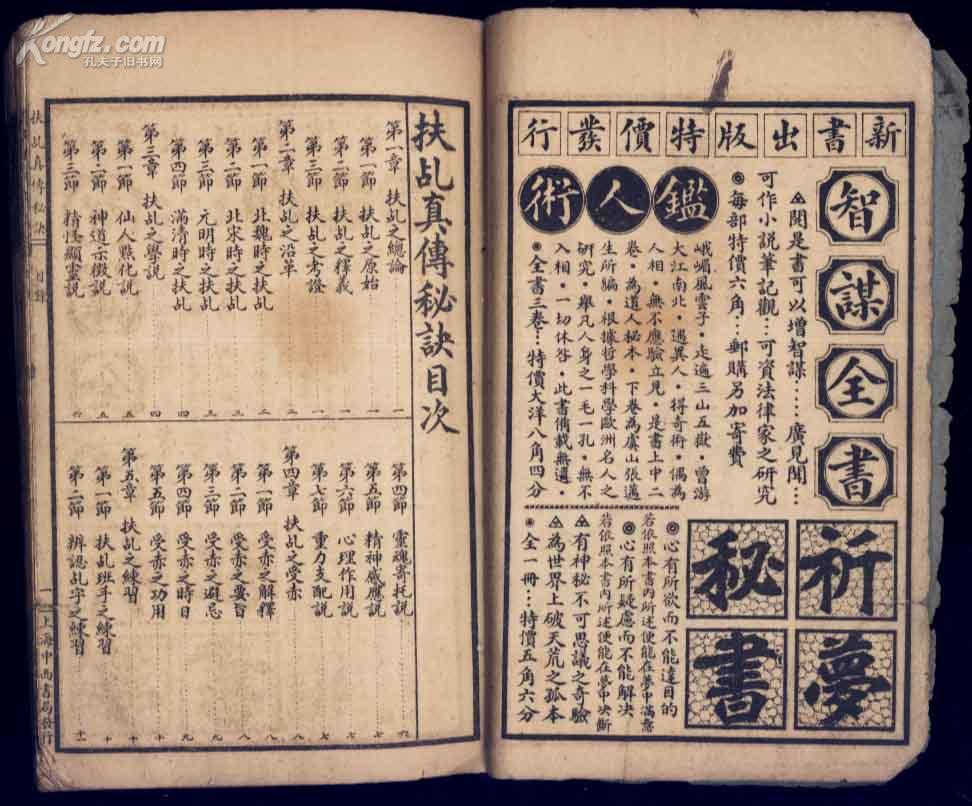 新書出版特價發行
智謀全書
▲閱是書可以增智謀……廣見聞…
可作小說筆記觀…可資法律家之研究
●每部特價六角…郵購另加寄費
鑑人術
峨嵋風雲子·走遍三山五嶽·曾游
大江南北·遇異人·得奇術·偶為
人相·無不應驗立見·是書上中二
卷·為道人秘本·下卷為虞山張邁
生所編·根據哲學科學歐洲名人之
研究·舉凡人身之一毛一孔·無不
入相·一切休咎·此書備載無遺·
●全書三卷…特價大洋八角四分
祈夢秘書
◎心有所欲而不能達目的
若依照本書內所述便能在夢中滿意
◎心有所疑慮而不能解決
若依照本書內所述便能在夢中决斷
▲有神秘不可思議之奇驗
▲為世界上破天荒之孤本
●全一冊…特價五角六分
扶乩真傳秘訣目次
第一章 扶乩之總論 一
第一節 扶乩之原始 一
第二節 扶乩之釋義 一
第三節 扶乩之考證 一
第二章 扶乩之沿革 二
第一節 北魏時之扶乩 二
第二節 北宋時之扶乩 三
第三節 元明時之扶乩 三
第四節 滿清時之扶乩 四
第三章 扶乩之學說 四
第一節 仙人點化說 五
第二節 神道示徵說 五
第三節 精怪顯靈說 六
第四節 靈魂寄托說 六
第五節 精神感應說 七
第六節 心理作用說 七
第七節 重力支配說 七
第四章 扶乩之受赤 八
第一節 受赤之解釋 八
第二節 受赤之要旨 八
第三節 受赤之避忌 九
第四節 受赤之時日 九
第五節 受赤之功用 十
第五章 扶乩之練習 十
第一節 扶乩班手之練習 十
第二節 辨認乩字之練習 十一
扶乩真傳秘訣 目錄
一
上海中西書局發行
Kongfz.com
孔夫子旧书网